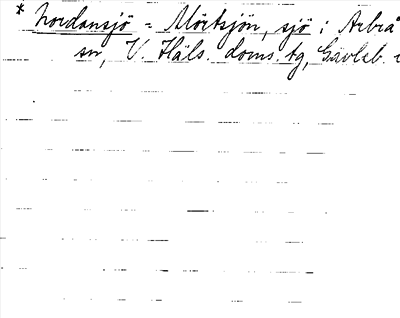 * Nordansjö = Mörtsjön, sjö i Arbrå
sn, V. Häls. doms. tg, Gävleb.